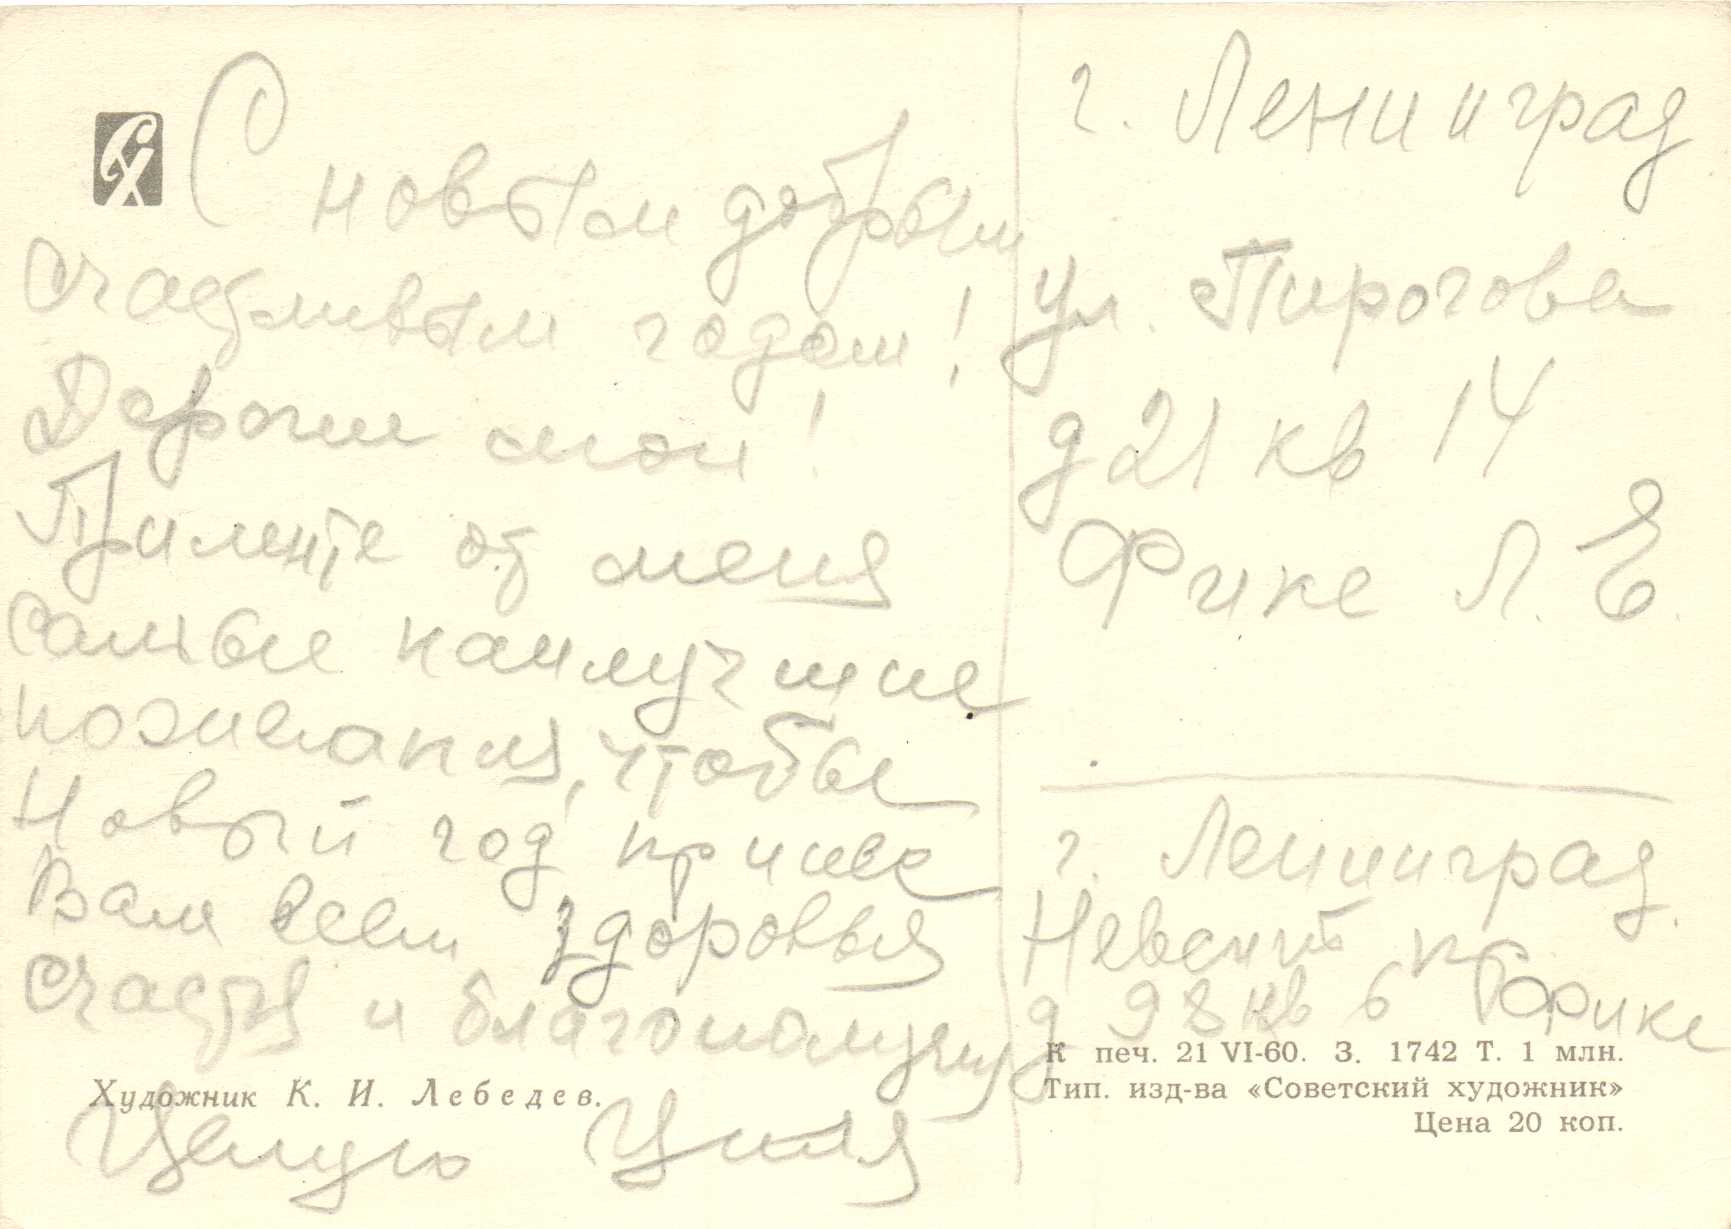 С новым добрым
счастливым годом!
Дорогие мои!
Примите от меня
самые наилучшие
пожелания, чтобы
Новый год принес
Вам всем здоровья
счастья и благополучия
Целую Циля
Художник К. И. Лебедев.
г. Ленинград
ул. Пирогова
д 21 кв 14
Фике Л. Е.
г. Ленинград
Невский пр
д 98 кв 6 Фрике
К печ. 21 VI-60. З. 1742 Т. 1 млн.
Тип. изд-ва «Советский художник»
Цена 20 коп.